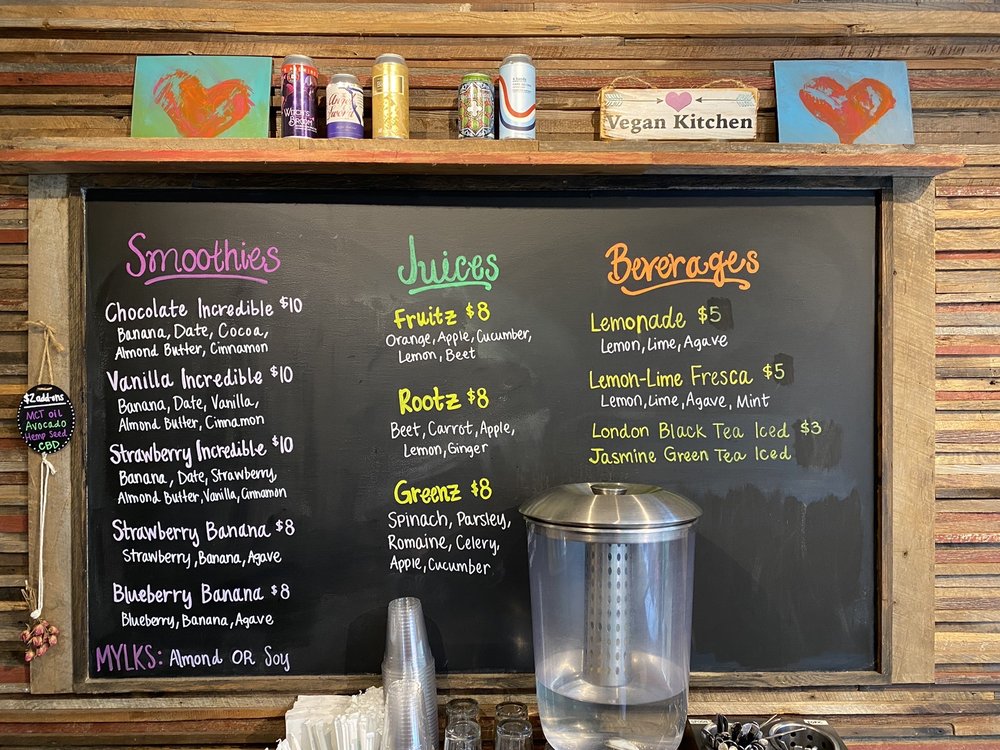 Witch's
Vegan Kitchen
Smoothies
Chocolate Incredible $10
Banana, Date, Cocoa,
Almond Butter, Cinnamon
Vanilla Incredible $10
Banana, Date, Vanilla,
Almond Butter, Cinnamon
Strawberry Incredible $10
Banana, Date, Strawberry,
Almond Butter, Vanilla, Cinnamon
Strawberry Banana $8
Strawberry, Banana, Agave
Blueberry Banana $8
Blueberry, Banana, Agave
MYLKS: Almond OR Soy
Juices
Fruitz $8
Orange, Apple, Cucumber,
Lemon, Beet
Rootz $8
Beet, Carrot, Apple,
Lemon, Ginger
Greenz $8
Spinach, Parsley,
Romaine, Celery,
Apple, Cucumber
Beverages
Lemonade $5
Lemon, Lime, Agave
Lemon-Lime Fresca $5
Lemon, Lime, Agave, Mint
London Black Tea Iced $3
Jasmine Green Tea Iced
$2 add-ons
MCT OIL
Avocado
Hemp Seed
CBD